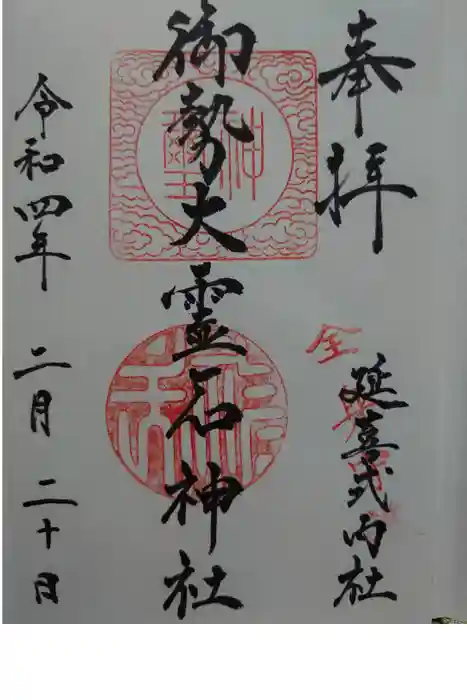 奉拝
延喜式内社
御勢大靈石神社
令和四年 二月 二十日